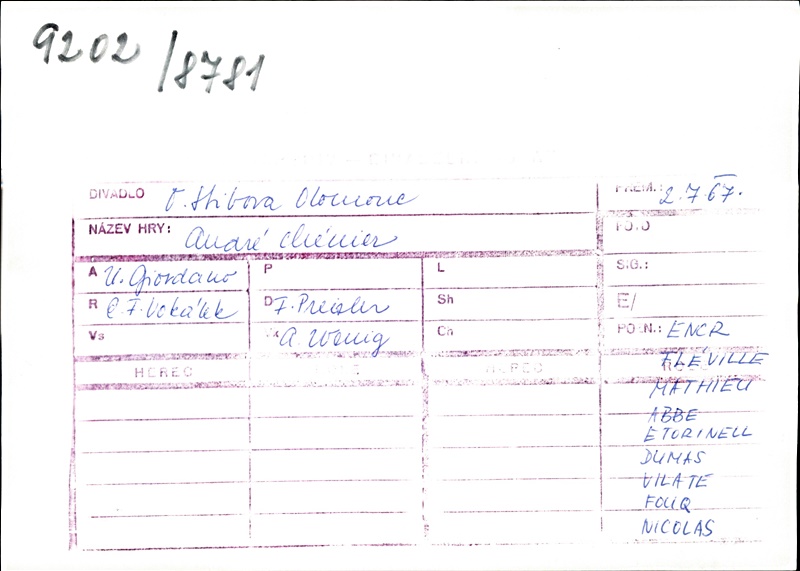 9202/8781
DIVADLO O. Stibora Olomouc
PREM.: 2.7.67.
NÁZEV HRY: André Chénier
FOTO
A U. Giordano
P
L
SIG.:
R E. F. Vokálek
D F. Preisler
Sh
E/
Vs
K A. Wenig
Ch
POZN.: ENCR
FLÉVILLE
HEREC
HEREC
MATHIEU
ABBE
ETORINELL
DUMAS
VILATE
FOUQ
NICOLAS